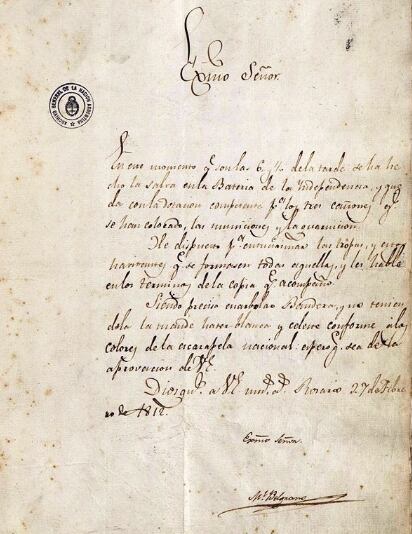 Exmo Señor.
ARCHIVO GENERAL DE LA NACION ARGENTINA
En este momento q.e son las 6 1/2 de la tarde se ha he
cho la salva en la Bateria de la Independencia, y que
da con la dotacion competente p.a los tres cañones q.e
se han colocado, las municiones y la guarnicion.
He dispuesto p.a entusiasmar las tropas, y estos
havitantes q.e se formasen todas aquellas, y les hablé
en los terminos de la copia q.e acompaño.
Siendo preciso enarbolar Bandera, y no tenien
dola la mandé hacer blanca y celeste conforme a los
colores de la escarapela nacional. espero q.e sea de la
aprovacion de V.E.
Dios gu.e a V.E. m.s a.s Rosario 27 de Febre
ro de 1812.
Exmo Señor.
M.l Belgrano